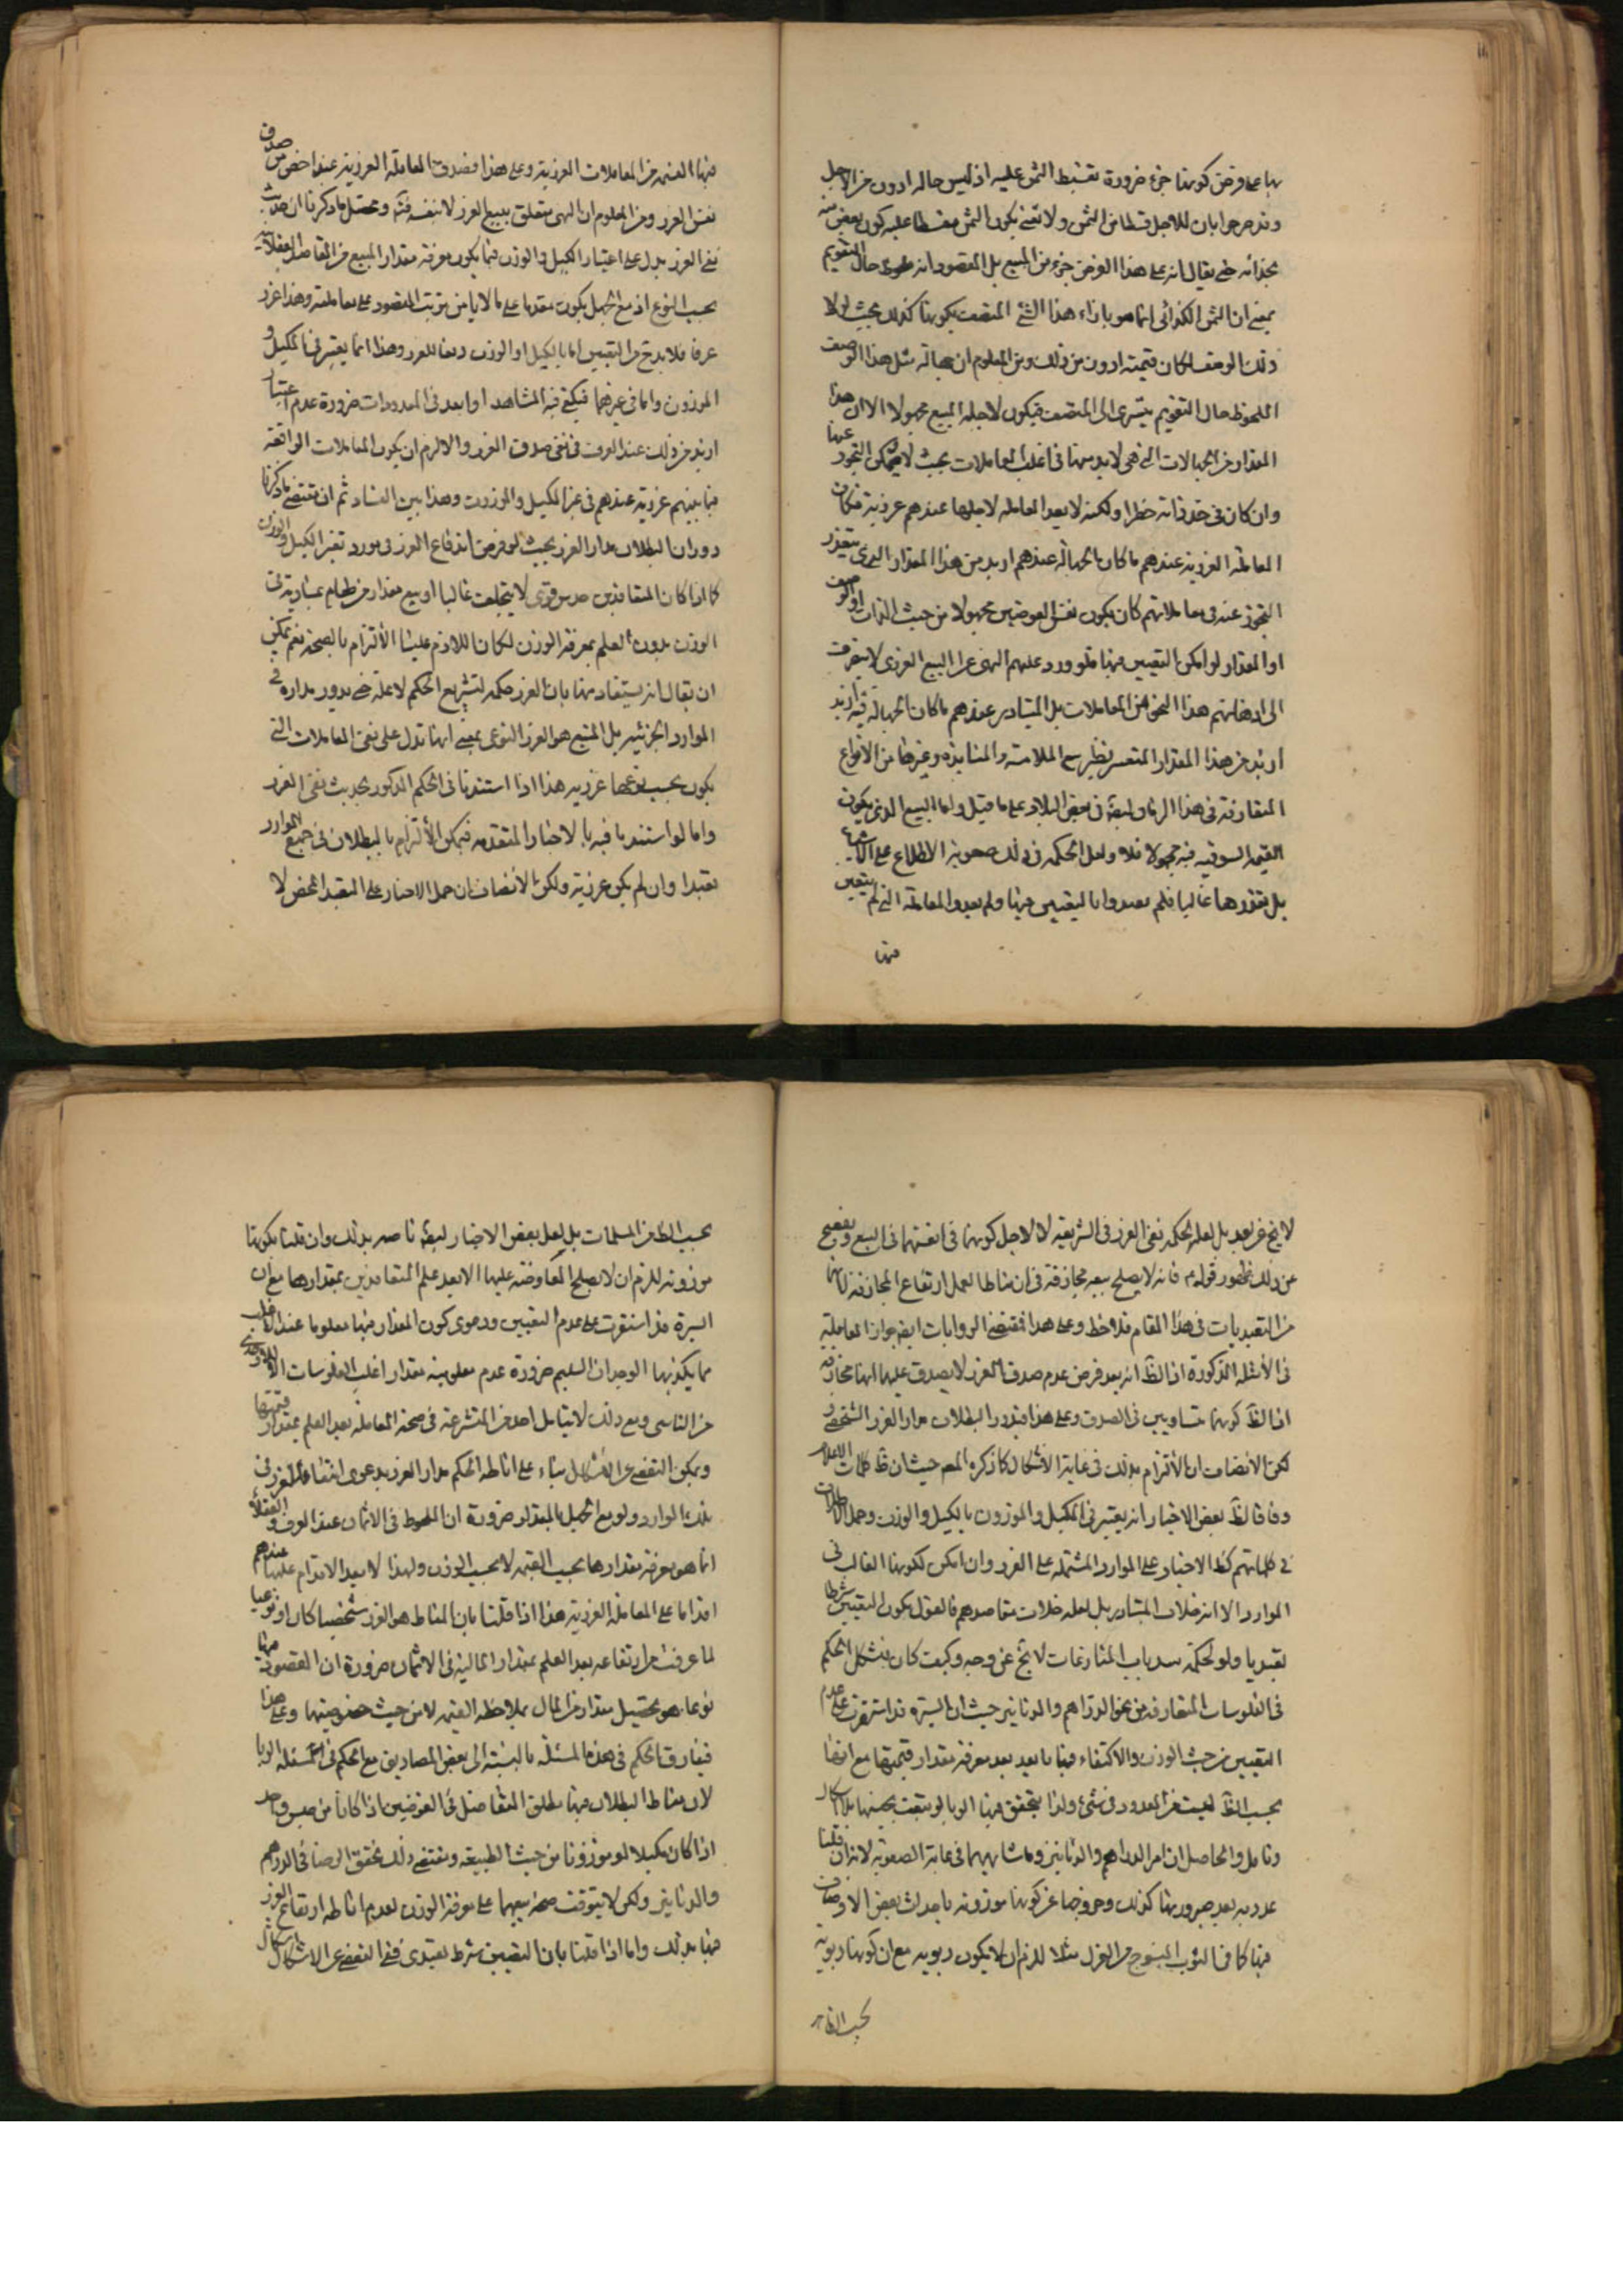 بها عما فرض كونها جزء ضرورة تقسيط الثمن عليه اذ ليس حاله ادون من الاجل
وقد صرحوا بان للاجل قسطا من الثمن ولا نعنى بكون الثمن مقسطا عليه كون بعض منه
بحذائه حتى يقال انه على هذا الفرض جزء من المبيع بل المقصود انه ملحوظ حال التقويم
بمعنى ان الثمن الكذائى انما هو بازاء هذا الشئ المتصف بكونها كذلك بحيث لولا
ذلك الوصف لكان قيمته ادون من ذلك ومن المعلوم ان جهالة مثل هذا الوصف
الملحوظ حال التقويم يتسرى الى المتصف فيكون لاجله المبيع مجهولا الا ان هذا
المقدار من الجهالات التى هى لا بد منها فى اغلب المعاملات بحيث لا يمكن التحرز عنها
وان كان فى حد ذاته خطرا ولكنه لا يعد المعاملة لاجلها عندهم غررية فكان
المعاملة الغررية عندهم ما كان الجهالة عندهم ازيد من هذا المقدار الذى يتعذر
التحرز عنه فى معاملاتهم كان يكون نفس العوضين مجهولا من حيث الذات او الوصف
او المقدار لو امكن التعيين فيها فلو ورد عليهم النهى عن البيع الغررى لا ينصرف
الى اذهانهم هذا النحو من المعاملات بل المتبادر عندهم ما كان الجهالة فيه ازيد
ازيد من هذا المقدار المتعسر نظير بيع الملامسة والمنابذة وغيرها من الانواع
المتعارفة فى هذا الزمان لبعض فى بعض البلاد على ما قيل واما البيع الذى يكون
القيمة السوقية فيه مجهولا فلا ولعل الحكمة فى ذلك صعوبة الاطلاع على الاسعار
بل تعذرها غالبا فلم يعتبروا التعيين فيها ولم يعدوا المعاملة التى لم يتعين
فيها
فيها القيمة من المعاملات الغررية وعلى هذا فصدق المعاملة الغررية عندنا اخص من صدق
نفس الغرر ومن المعلوم ان النهى متعلق ببيع الغرر لا بنفسه فتدبر ومحصل ما ذكرنا ان حديث
نفى الغرر يدل على اعتبار الكيل والوزن فيما يكون معرفة مقدار المبيع من المقاصد العقلائية
بحسب النوع اذ مع الجهل يكون مقدما على ما لا يأمن من ترتب المقصود على معاملته وهذا غرر
عرفا فلا بد ح من التعيين اما بالكيل او الوزن دفعا للغرر وهذا انما يعتبر فى المكيل و
الموزون واما فى غيرهما فيكفى فيه المشاهدة او العد فى المعدودات ضرورة عدم اعتبار
ازيد من ذلك عند العرف فى نفى صدق الغرر والا لزم ان يكون المعاملات الواقعة
فيما بينهم غررية عندهم فى غير المكيل والموزون وهذا بين الفساد ثم ان مقتضى ما ذكرنا
دوران البطلان مدار الغرر بحيث لو فرض اندفاع الغرر فى مورد بغير الكيل والوزن
كما اذا كان للمتعاقدين حدس قوى لا يتخلف غالبا او بيع مقدار من طعام بما يساويه فى
الوزن بدون العلم بمعرفة الوزن لكان اللازم علينا الالتزام بالصحة نعم يمكن
ان يقال انه يستفاد منها بان الغرر حكمة لتشريع الحكم لا علة حتى يدور مداره فى
الموارد الجزئية بل المتبع هو الغرر النوعى بمعنى انها تدل على نفى المعاملات التى
يكون بحسب نوعها غررية هذا اذا استندنا فى الحكم المذكور بحديث نفى الغرر
واما لو استندنا فيه بالاخبار المتقدمة فيمكن الالتزام بالبطلان فى جميع الموارد
تعبدا وان لم يكن غررية ولكن الانصاف ان حمل الاخبار على التعبد المحض لا
لا يخ عن بعد بل لعله لحكمة نفى الغرر فى الشريعة لا لاجل كونها فى انفسها فى البيع ويفصح
عن ذلك ظهور قوله ع فانه لا يصلح بيعه مجازفة فى ان مناط العمل ارتفاع المجازفة لا انها
من التعبديات فى هذا المقام فلاحظ وعلى هذا فمقتضى الروايات ايضا جواز المعاملة
فى الامثلة المذكورة اذ الظ انه بعد فرض عدم صدق الغرر لا يصدق عليها انها مجازفة
اذ الظ كونهما متساويين فى الصدق وعلى هذا فيدور البطلان مدار الغرر الشخصى
لكن الانصاف ان الالتزام بذلك فى غاية الاشكال كما ذكره المصـ حيث ان ظ كلمات الاعلام
وفاقا لظ بعض الاخبار انه يعتبر فى المكيل والموزون بالكيل والوزن وحمل الاطلاقات
فى كلماتهم كظ الاخبار على الموارد المشتملة على الغرر وان امكن لكونها الغالب فى
الموارد الا انه خلاف المتبادر بل لعله خلاف مقاصدهم فالقول بكون التعيين شرطا
تعبديا ولو لحكمة سد باب المنازعات لا يخ عن وجه وكيف كان فيشكل الحكم
فى الفلوسات المتعارفة من نحو الدراهم والدنانير حيث ان السيرة قد استقرت على عدم
التعيين من حيث الوزن والاكتفاء فيها بالعد بعد معرفة مقدار قيمتها مع انها
بحسب الظ ليست من المعدود فى شئ ولذا يتحقق فيها الربا لو بيعت بجنسها بلا اشكال
وتامل والحاصل ان امر الدراهم والدنانير وما شابههما فى غاية الصعوبة لانه ان قلنا
عددية بعد صيرورتها كذلك وخروجها عن كونها موزونة باحداث بعض الاوصاف
فيها كما فى الثوب المنسوج من الغزل مثلا للزم ان لا يكون ربوية مع ان كونها ربوية
بحسب الظاهر
بحسب الظ من المسلمات بل لعل بعض الاخبار ايضا ناص بذلك وان قلنا بكونها
موزونة للزم ان لا يصلح المعاوضة عليها الا بعد علم المتعاقدين بمقدارها مع ان
السيرة قد استقرت على عدم التعيين ودعوى كون المقدار فيها معلوما عند الاغلب
مما يكذبها الوجدان السليم ضرورة عدم معلومية مقدار اغلب الفلوسات الا لاوحدى
من الناس ومع ذلك لا يتامل احد من المتشرعة فى صحة المعاملة بعد العلم بمقدار قيمتها
ويمكن التفصى عن الاشكال بناء على اناطة الحكم مدار الغرر بدعوى انتفاء الغرر فى
تلك الموارد ولو مع الجهل بالمقدار ضرورة ان الملحوظ فى الاثمان عند العرف والعقلاء
انما هو معرفة مقدارها بحسب القيمة لا بحسب الوزن ولهذا لا يعد الاقدام عليها عندهم
اقداما على المعاملة الغررية هذا اذا قلنا بان المناط هو الغرر شخصيا كان او نوعيا
لما عرفت من ارتفاعه بعد العلم بمقدار المالية فى الاثمان ضرورة ان المقصود منها
نوعا هو تحصيل مقدار من المال بملاحظة القيمة لا من حيث خصوصيتها وعلى هذا
فيفارق الحكم فى هذه المسئلة بالنسبة الى بعض المصاديق مع الحكم فى مسئلة الربا
لان مناط البطلان فيها مطلق التفاضل فى العوضين اذا كانا من جنس واحد
اذا كان مكيلا او موزونا من حيث الطبيعة ومقتضى ذلك تحقق الربا فى الدراهم
والدنانير ولكن لا يتوقف صحة بيعهما على معرفة الوزن لعدم اناطة ارتفاع الغرر
فيها بذلك واما اذا قلنا بان التعيين شرط تعبدى ففى التفصى عن الاشكال اشكال